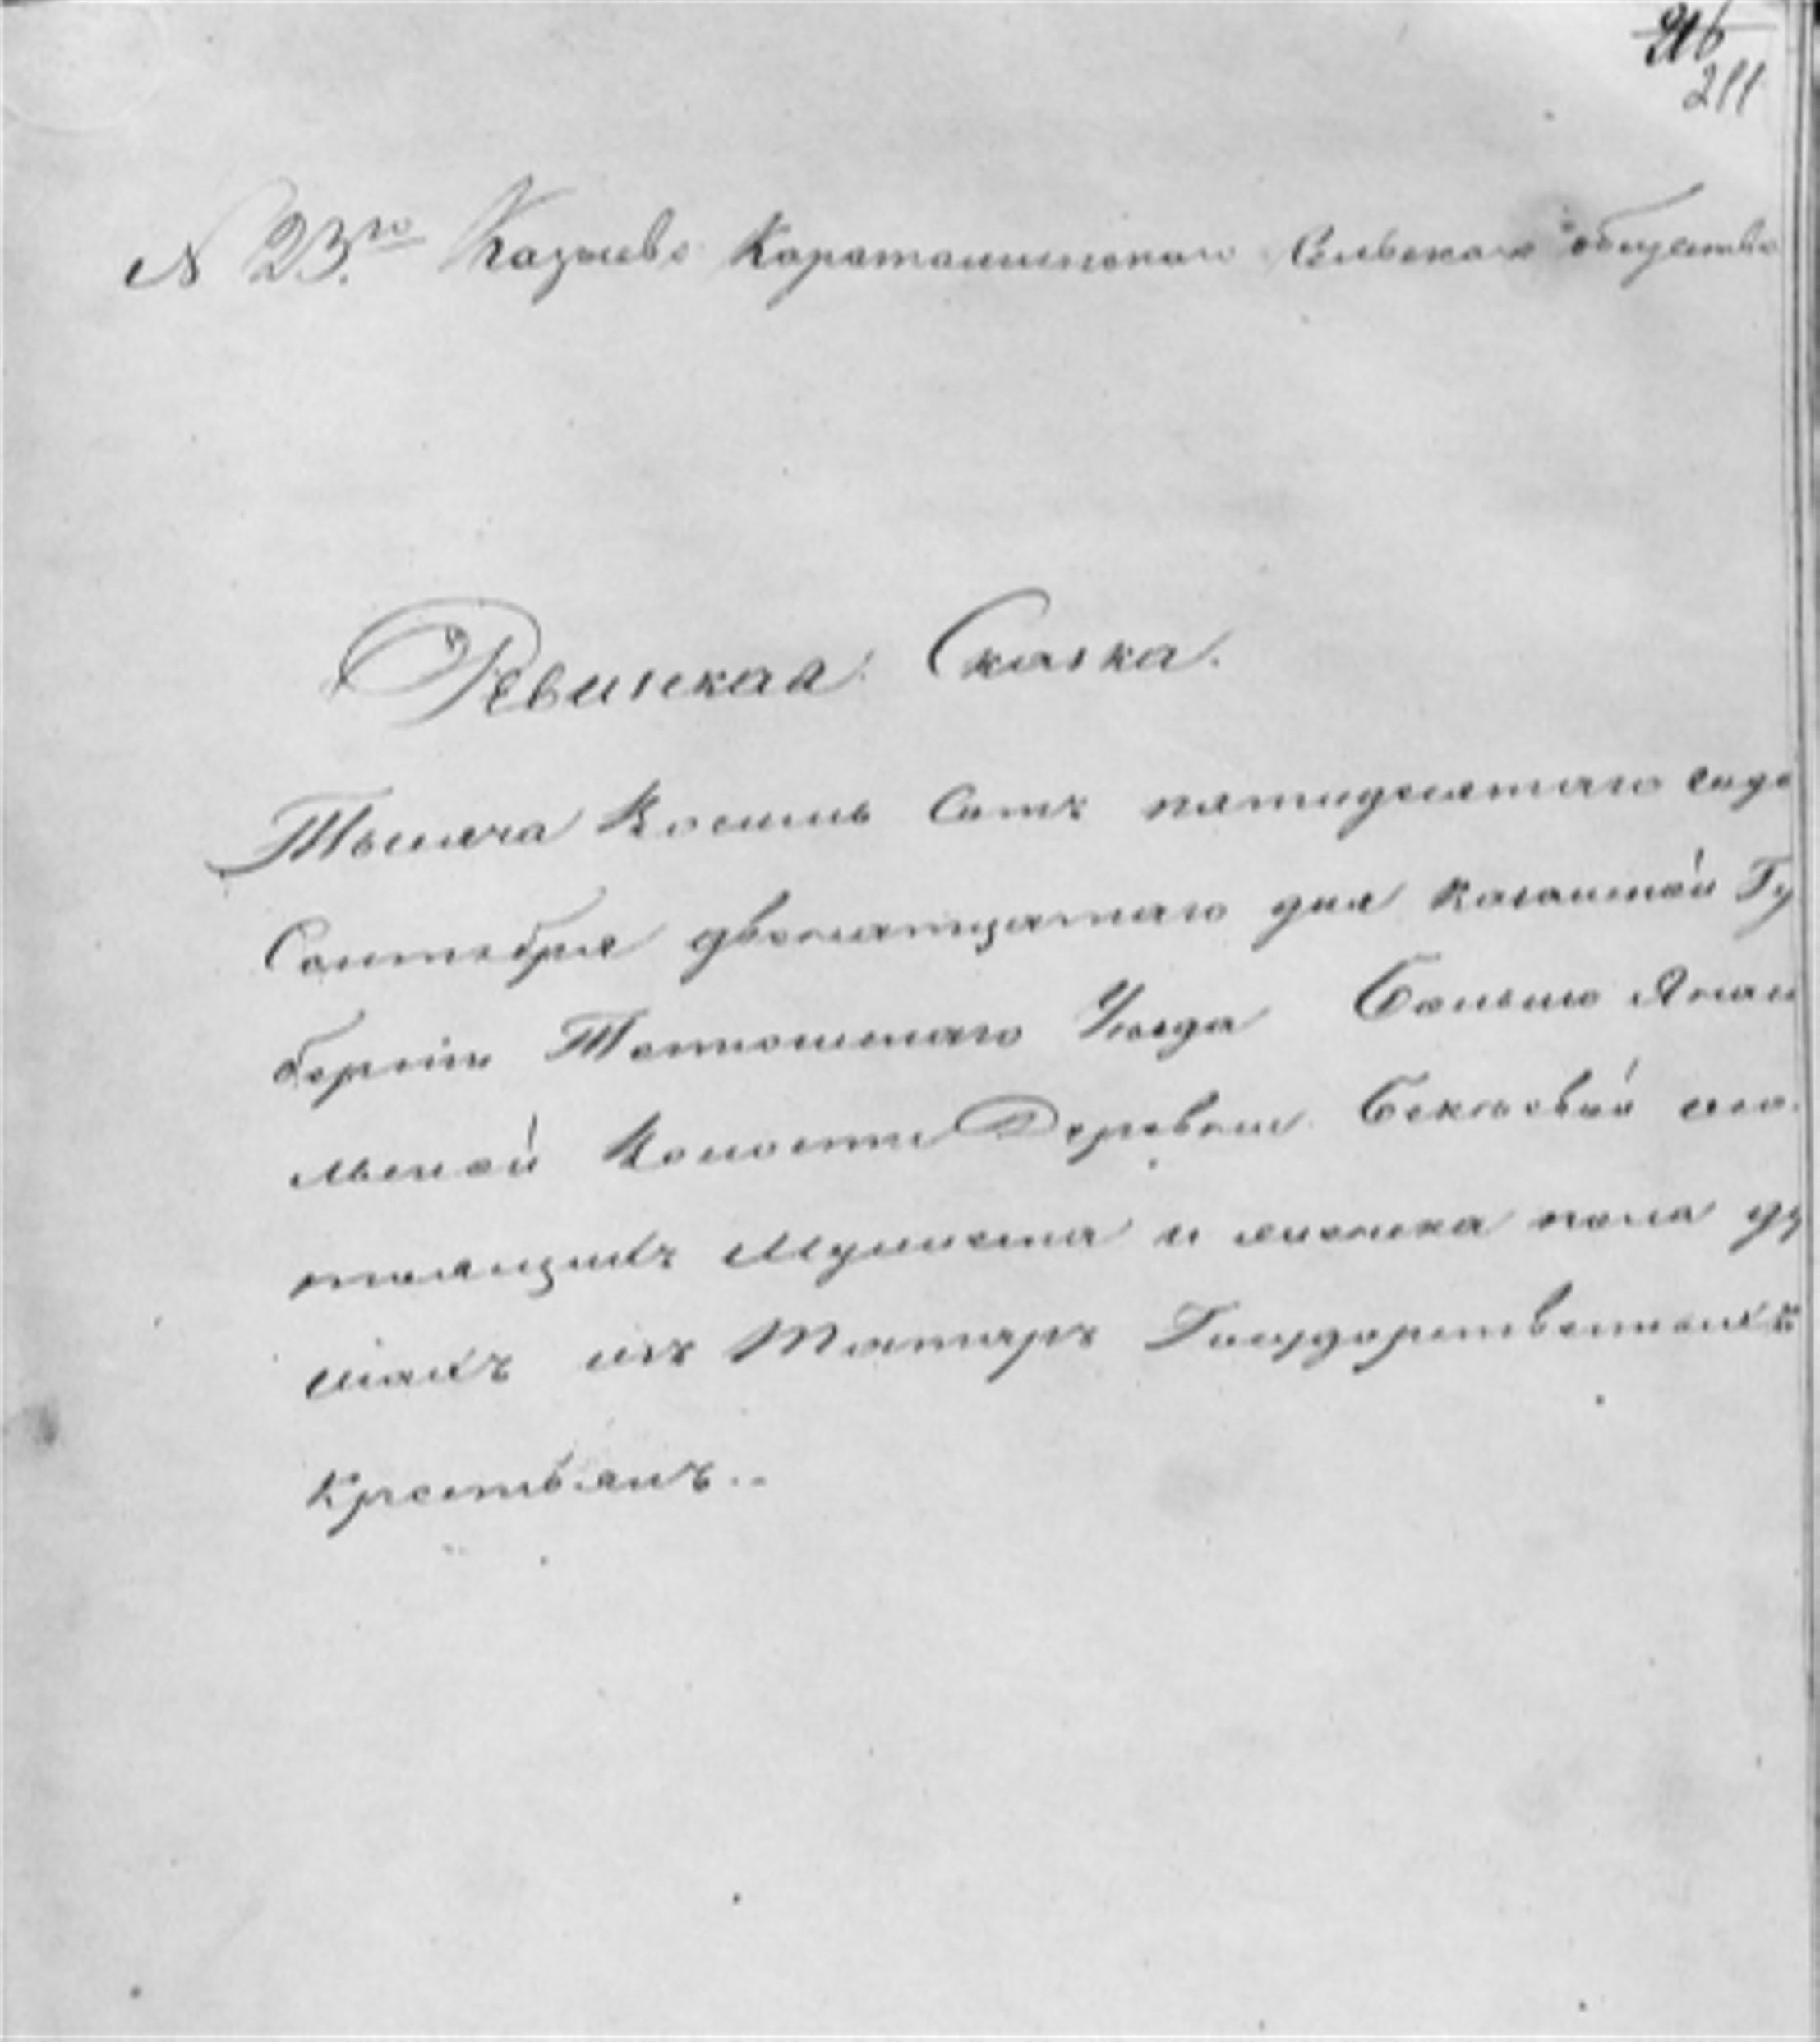 216
211
N 23.го Казыево Караталинского Сельскаго общества
Ревизская Сказка.
Тысяча восемь Сотъ пятидесятаго года
Сентября двенатцатаго дня Казанской Гу
берніи Тетюшскаго Уезда Больше
льской Волости Деревни
тоящихъ Мужеска и женска пола ду
шахъ изъ Татаръ Государственныхъ
Крестьянъ..